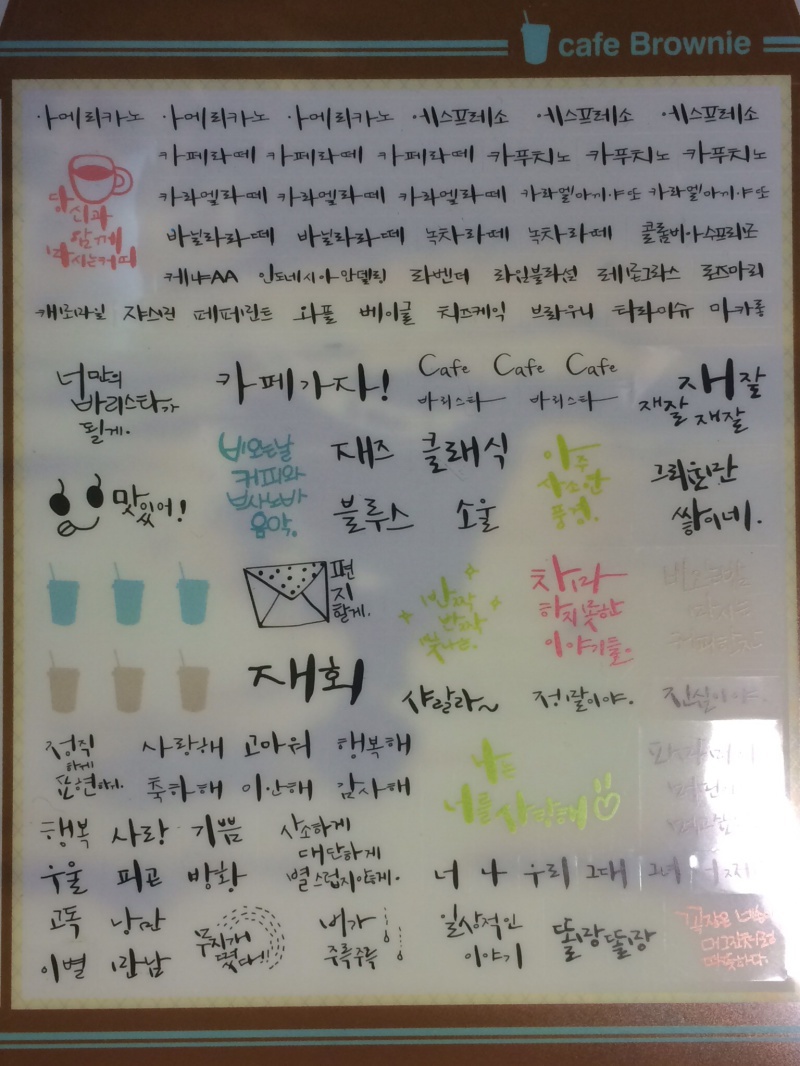 cafe Brownie
아메리카노 아메리카노 아메리카노 에스프레소 에스프레소 에스프레소
카페라떼 카페라떼 카페라떼 카푸치노 카푸치노 카푸치노
카라멜라떼 카라멜라떼 카라멜라떼 카라멜마끼아또 카라멜마끼아또
당신과
함께
마시는커피
바닐라라떼 바닐라라떼 녹차라떼 녹차라떼 콜롬비아수프리모
케냐AA 인도네시아만델링 라벤더 라인블라썸 레몬그라스 로즈마리
캐모마일 쟈스민 페퍼민트 와플 베이글 치즈케익 브라우니 티라미슈 마카롱
너만의
바리스타가
될게.
카페가자!
Cafe Cafe Cafe
바리스타 바리스타
재잘
재잘 재잘
맛있어!
비오는날
커피와
보사노바
음악.
재즈 클래식
블루스 소울
아주
사소한
풍경.
그리움만
쌓이네.
편
지
할게.
반짝
반짝
빛나는.
차마
하지못한
이야기들.
재회
샤랄라~ 정말이야. 진심이야.
정직
하게
표현하기.
사랑해 고마워 행복해
축하해 미안해 감사해
나는
너를 사랑해
행복 사랑 기쁨
우울 피곤 방황
사소하게
대단하게
별스럽지않게.
너 나 우리 그대 그녀
고독 낭만
이별 만남
무지개
떴다!!
비가
주륵주륵
일상적인
이야기
똘랑똘랑